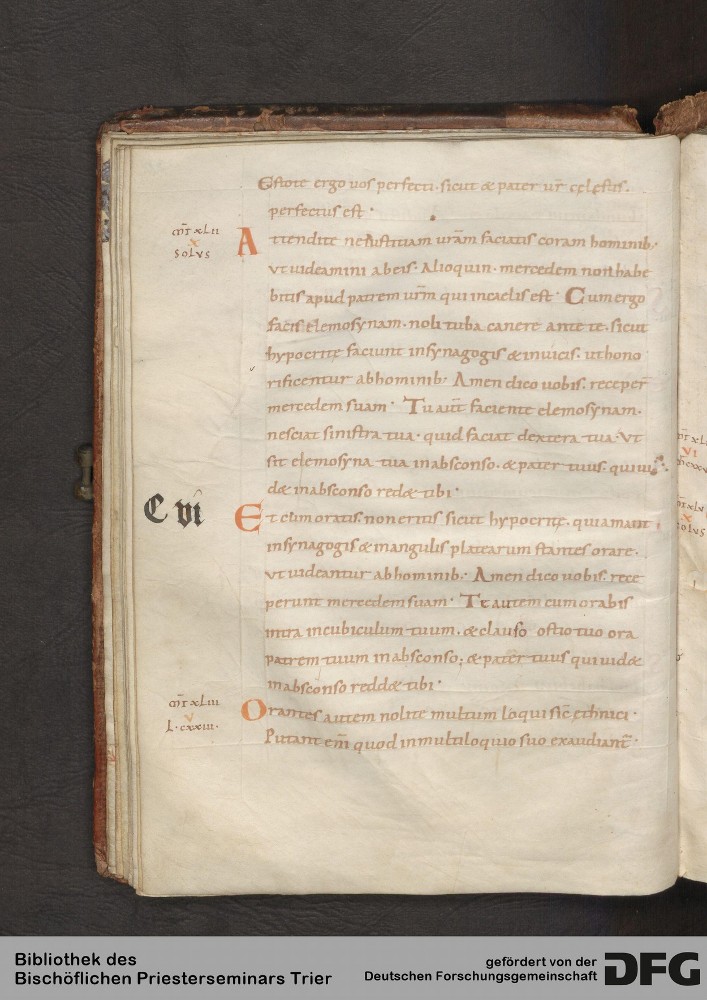 Estote ergo uos perfecti. sicut & pater ur̄ cęlestis.
perfectus est.
m̄t xLii
x
SoLVS
Attendite ne iustitiam uram̄ faciatis coram hominib;
ut uideamini ab eis. Alioquin. mercedem non habe
bitis apud patrem urm̄ qui in caelis est. Cum ergo
facis elemosynam. noli tuba canere ante te. sicut
hypocritę faciunt in synagogis & in uicis. ut hono
rificentur ab hominib; Amen dico uobis. receper̄
mercedem suam. Tu aut̄ faciente elemosynam.
nesciat sinistra tua. quid faciat dextera tua. Ut
sit elemosyna tua in absconso. & pater tuus. qui ui
d& in absconso redd& tibi.
C vi
Et cum oratis. non eritis sicut hypocritę. qui amant
in synagogis & in angulis platearum stantes orare.
ut uideantur ab hominib; Amen dico uobis. rece
perunt mercedem suam. Tu autem cum orabis
intra in cubiculum tuum. & clauso ostio tuo ora
patrem tuum in absconso; & pater tuus qui uid&
in absconso redd& tibi.
m̄t xLiii
v
L. cxxiii.
Orantes autem nolite multum loqui sic̄ ethnici.
Putant em̄ quod in multiloquio suo exaudiant̄.
Bibliothek des
Bischöflichen Priesterseminars Trier
gefördert von der
Deutschen Forschungsgemeinschaft
DFG